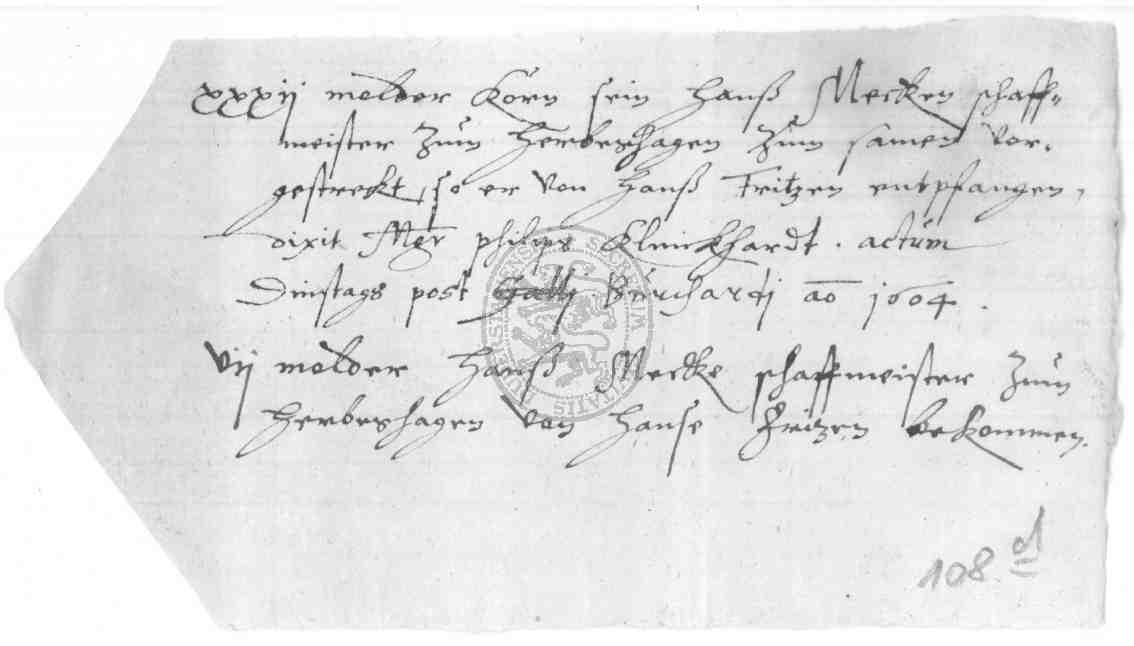 xxxij molder Korn sein Hanß Mecken schaff=
meister zum Herbershagen zum samen vor.
gestreckt, so er von Hanß Fritzen entpfangen,
dixit Mgr philips Klinckhardt. actum
Dinstags post Galli Burchardj ao 1604.
vij molder Hanß Mecke schaffmeister zum
Herbershagen von Hanse Fritzen bekommen.
108 d